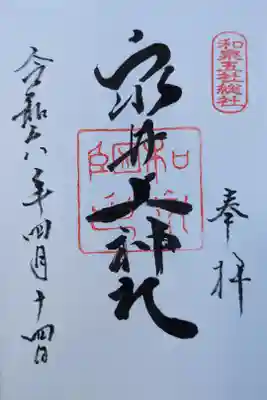 和泉五社総社
奉拝
泉井上神社
令和六年四月十四日